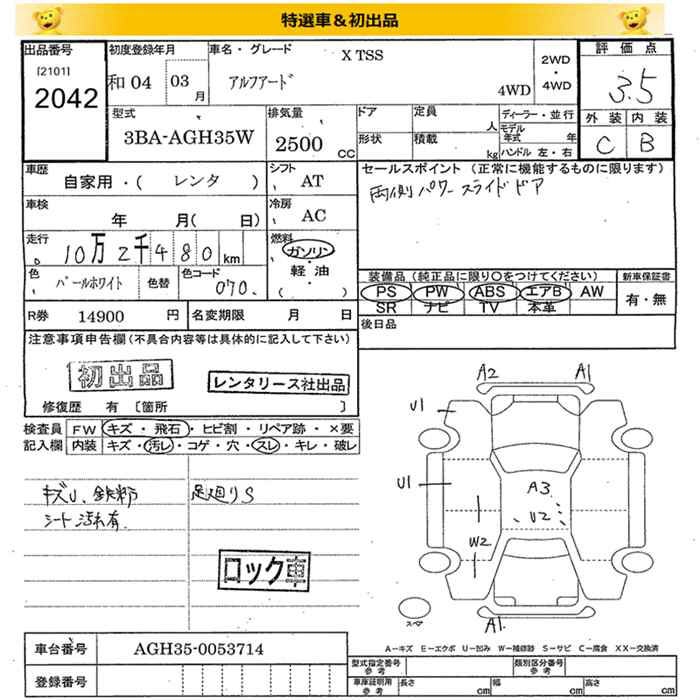 特選車＆初出品
出品番号
[2101]
2042
初度登録年月
和04 03月
車名・グレード
X TSS
アルファード
4WD
2WD
・
4WD
評価点
3.5
外装 内装
C B
型式
3BA-AGH35W
排気量
2500 CC
ドア
形状
定員 人
積載 kg
ディーラー・並行
モデル年式 年
ハンドル 左・右
車歴
自家用・( レンタ )
シフト
AT
セールスポイント（正常に機能するものに限ります）
両側パワースライドドア
車検
年 月( 日)
冷房
AC
走行
10万2千480km
燃料
ガソリン
・
軽油
・
( )
色
パールホワイト
色替
色コード
070.
装備品（純正品に限り○をつけてください）
PS PW ABS エアB AW
SR ナビ TV 本革
新車保証書
有・無
R券 14900 円
名変期限 月 日
後日品
注意事項申告欄(不具合内容等は具体的に記入して下さい)
初出品
レンタリース社出品
修復歴 有 [箇所 ]
検査員記入欄
FW キズ・飛石・ヒビ割・リペア跡・×要
内装 キズ・汚レ・コゲ・穴・スレ・キレ・破レ
キズU、鉄粉
シート汚れ有
足廻りS
ロック車
A2 A1
U1
U1
A3
U2
W2
A1
スペア
A－キズ E－エクボ U－凹み W－補修跡 S－サビ C－腐食 XX－交換済
車台番号 AGH35-0053714
登録番号
型式指定番号
参考
類別区分番号
参考
車庫証明用
参考
長さ cm 幅 cm 高さ cm